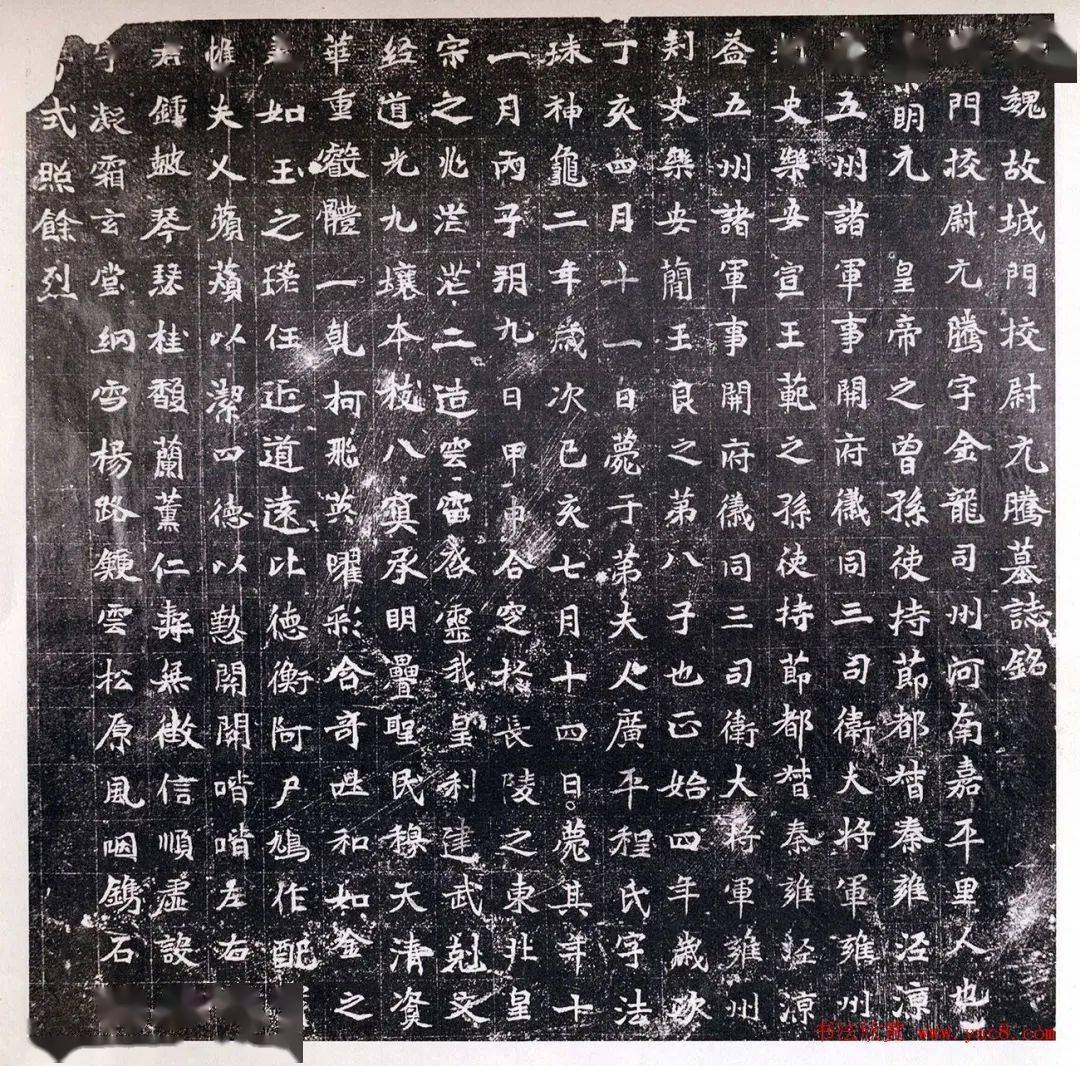 魏故城門校尉元騰墓誌銘
門校尉元騰字金龍司州河南嘉平里人也
明元 皇帝之曾孫使持節都督秦雍涇涼
五州諸軍事開府儀同三司衛大將軍雍州
史樂安宣王範之孫使持節都督秦雍涇涼
益五州諸軍事開府儀同三司衛大將軍雍州
刺史樂安簡王良之第八子也正始四年歲次
丁亥四月十一日薨于第夫人廣平程氏字法
珠神龜二年歲次己亥七月十四日薨其年十
一月丙子朔九日甲申合窆於長陵之東北皇
宗之兆茫茫二造雲雷啓靈我皇利建武剋文
经道光九壤本枝八寘承明疊聖民穆天清資
華重叡體一乹柯飛英曜彩含奇挺和如金之
如玉之瑳任近道遠比德衡阿尸鳩作配
惟夫人蘋蘩以潔四德以懃關關喈喈左右
君鍾皷琴瑟桂馥蘭薰仁壽無徵信順虛設
凝霜玄堂網雪楊路鍾雲松原風咽鐫石
式照餘烈
www.yac8.com